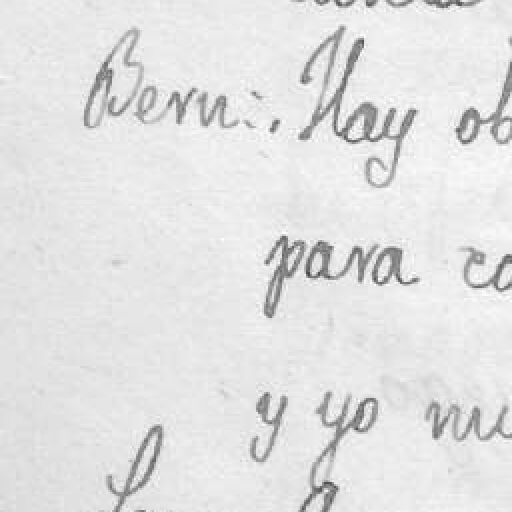 Bern:. Hay ob
para co
y yo nu